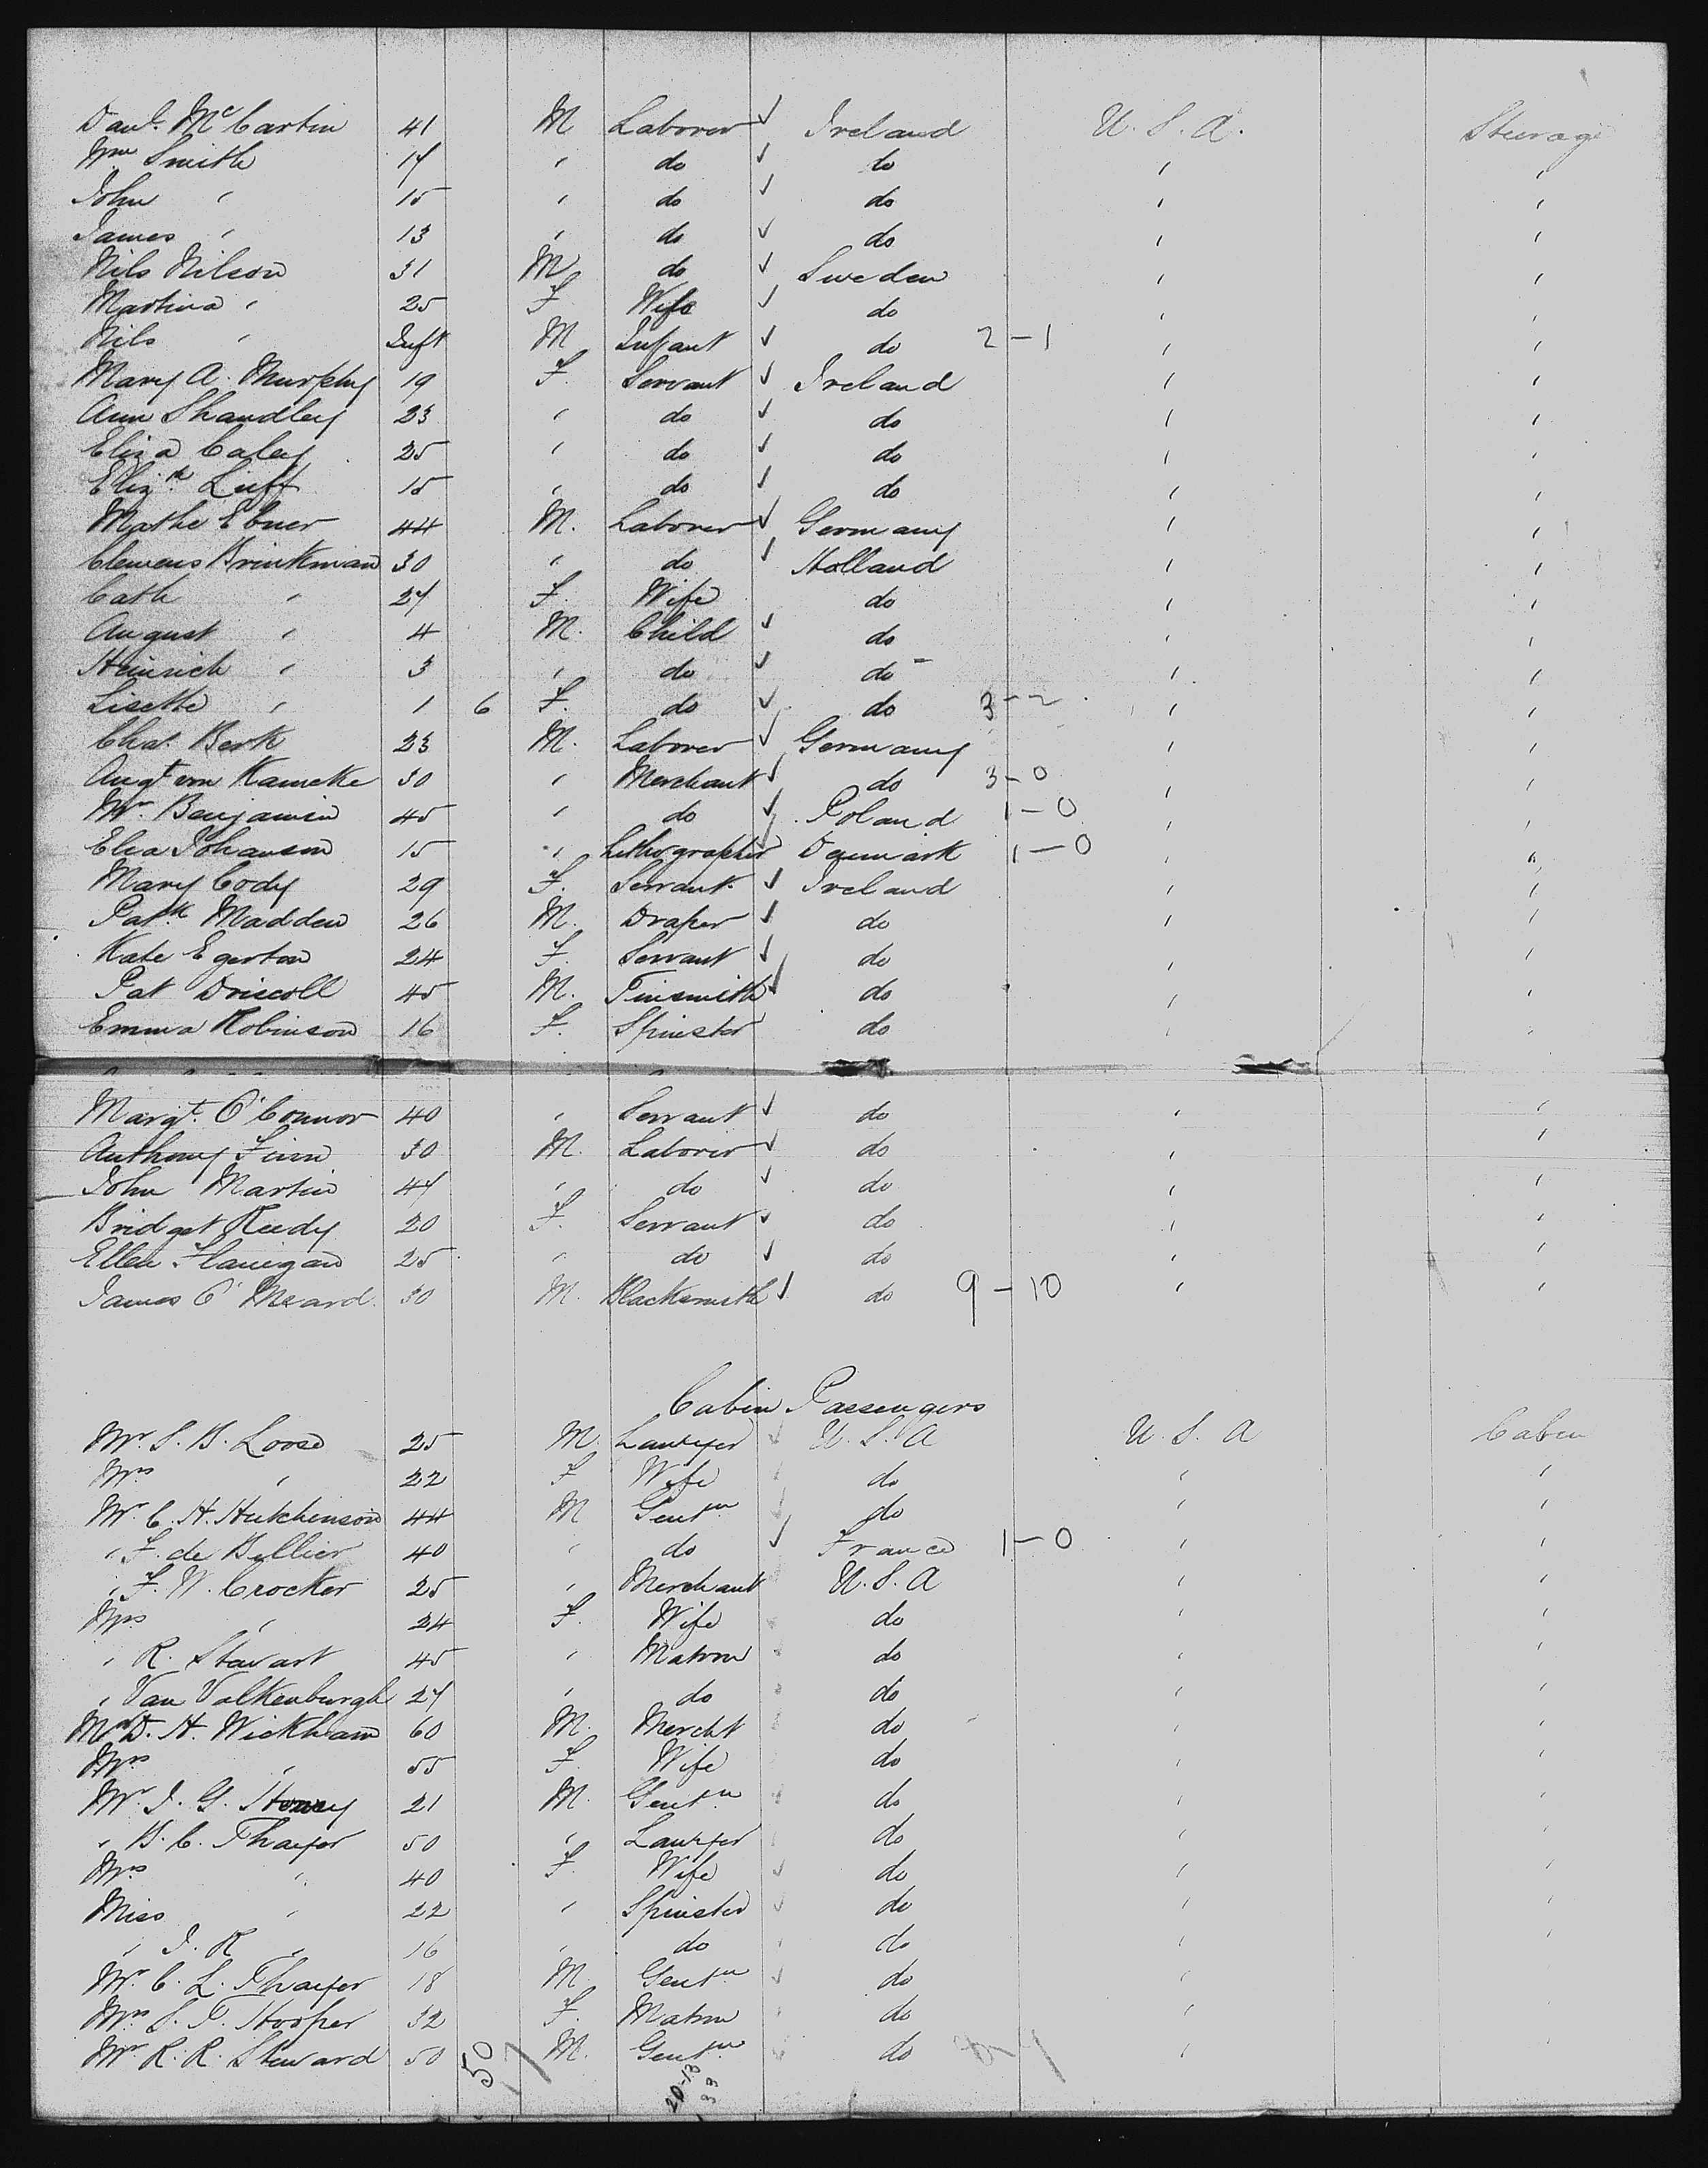 Danl. McCartin 41 M Laborer ✓ Ireland U.S.A. Steerage
Wm Smith 17 " do ✓ do " "
John " 15 " do ✓ do " "
James " 13 " do ✓ do " "
Nils Nilson 31 M do ✓ Sweden " "
Martina " 25 F Wife ✓ do " "
Nils " Inft M Infant ✓ do 2-1 " "
Mary A. Murphy 19 F. Servant ✓ Ireland " "
Ann Shandley 23 " do ✓ do " "
Eliza Caley 25 " do ✓ do " "
Elizth Luff 15 " do ✓ do " "
Mathe Ebner 44 M. Laborer ✓ Germany " "
Clemens Brinkman 30 " do ✓ Holland " "
Cath " 27 F. Wife do " "
August " 4 M. Child ✓ do " "
Heinrich " 3 " do ✓ do " "
Lisette " 1 6 F. do ✓ do 3-2 " "
Chas. Berk 23 M. Laborer ✓ Germany " "
Augt von Kameke 30 " Merchant ✓ do 3-0 " "
Mr. Benjamin 45 " do ✓ Poland 1-0 " "
Elea Johansen 15 " Lithographer Denmark 1-0 " "
Mary Cody 29 F. Servant ✓ Ireland " "
Patk Madden 26 M. Draper ✓ do " "
Kate Egerton 24 F. Servant ✓ do "
Pat Driscoll 45 M. Tinsmith ✓ do " "
Emma Robinson 16 F. Spinster do " "
Margt. O'Connor 40 " Servant ✓ do " "
Anthony Finn 30 M. Laborer ✓ do " "
John Martin 47 " do ✓ do " "
Bridget Reedy 20 F. Servant ✓ do " "
Ellen Flanigan 25 " do ✓ do " "
James O'Meard 30 M. Blacksmith ✓ do 9-10 " "
Cabin Passengers
Mr. S. B. Loose 25 M. Lawyer ✓ U.S.A U.S.A Cabin
Mrs " 22 F Wife do " "
Mr. C. H. Hutchinson 44 M Gentn ✓ do " "
" F. de Billier 40 " do ✓ France 1-0 " "
" F. W. Crocker 25 " Merchant U.S.A " "
Mrs " 24 F. Wife do " "
" R. Stewart 45 " Matron do " "
" Van Valkenburgh 27 " do do " "
Mr D. H. Wickham 60 M. Mercht do " "
Mrs " 55 F. Wife do " "
Mr. J. G. 21 M. Gentn do " "
" B. C. Thayer 50 " Lawyer do " "
Mrs " 40 F. Wife ✓ do " "
Miss " 22 " Spinster ✓ do " "
" J. R " 16 " do do " "
Mr. C. L. Thayer 18 M Gentn ✓ do " "
Mrs S. T. Hooper 32 F. Matron do " "
Mr R. R. Steward 50 M. Gentn ✓ do " "
50 17
20-13
33